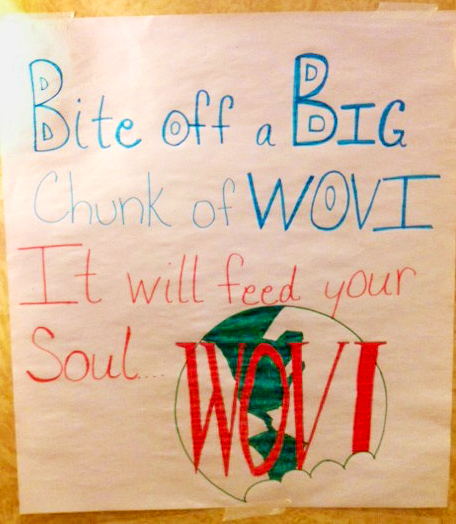 Bite off a BIG
Chunk of WOVI
It will feed your
Soul....
WOVI